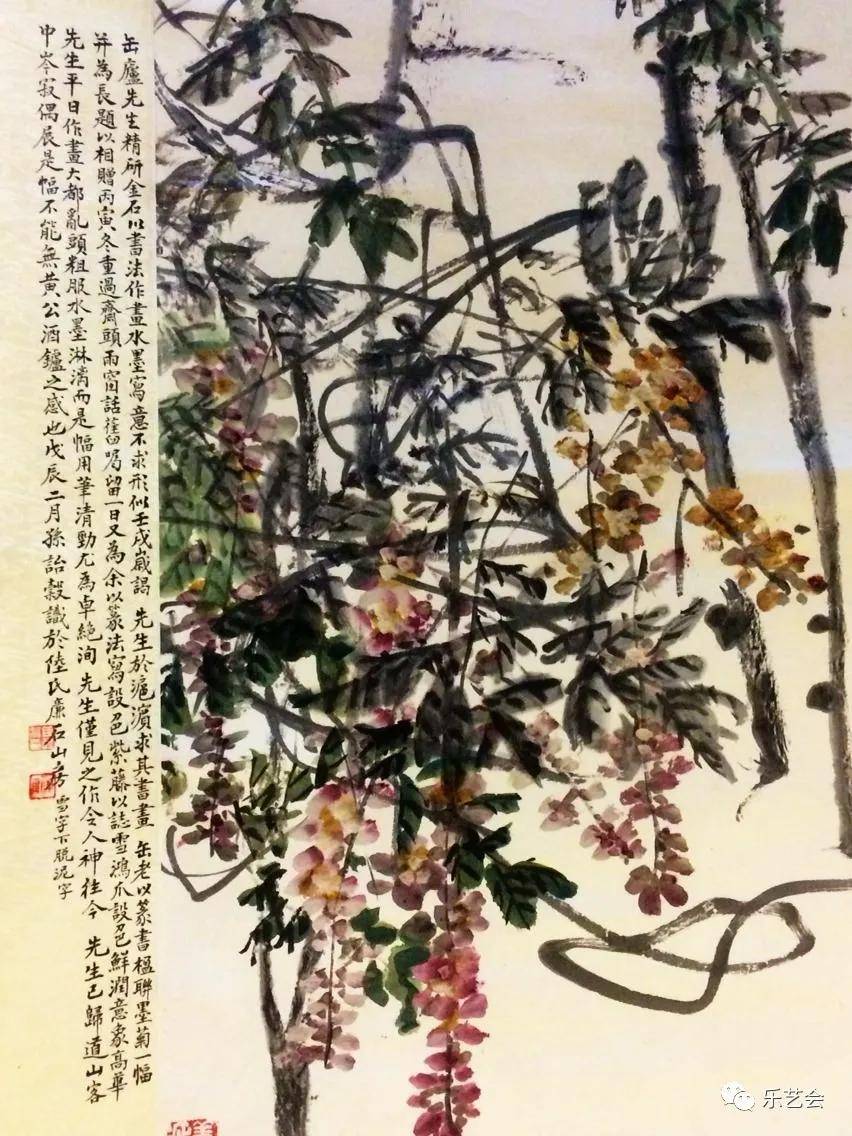 缶廬先生精研金石以書法作畫水墨寫意不求形似壬戌歲謁 先生於滬濱求其書畫 缶老以篆書楹聯墨菊一幅
并為長題以相贈丙寅冬重過齋頭雨窗話舊因囑留一日又為余以篆法寫設色紫藤以誌雪鴻爪設色鮮潤意象高華
先生平日作畫大都亂頭粗服水墨淋漓而是幅用筆清勁尤為卓絶洵 先生僅見之作令人神往今 先生已歸道山客
中岑寂偶展是幅不能無黃公酒鑪之感也戊辰二月孫詒穀識於陸氏廉石山房 雪字下脱泥字
乐艺会